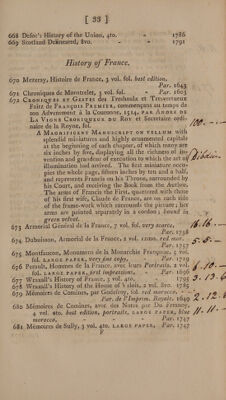 [ 33 ]
668 Defoe's History of the Union, 4to. - 1786
669 Scotland Delineated, 8vo. - - 1791
History of France.
670 Mezeray, Histoire de France, 3 vol. fol. best edition,
Par. 1643
671 Chroniques de Monstrelet, 3 vol. fol. - Par. 1603
672 Chroniques et Gestes des Treshaulx et Tresvertueux
Faitz de François Premier, commençans au temps de
son Advenement à la Couronne, 1514, par André de
La Vigne Croniqueur au Roy et Secretaire ordi-
naire de la Royne, fol.
A Magnificent Manuscript on vellum with
splendid miniatures and highly ornamented capitals
at the beginning of each chapter, of which many are
six inches by five, displaying all the richness of in-
vention and grandeur of execution to which the art of
illumination had arrived. The first miniature occu-
pies the whole page, fifteen inches by ten and a half,
and represents Francis on his Throne, surrounded by
his Court, and receiving the Book from the Author.
The arms of Francis the First, quartered with those
of his first wife, Claude de France, are on each side
of the frame-work which surrounds the picture; his
arms are painted separately in a cordon; bound in
green velvet.
100. - -
673 Armorial Général de la France, 7 vol. fol. very scarce,
Par. 1738
16.16. -
674 Dubuisson, Armorial de la France, 2 vol. 12mo. red mor.
Par. 1757
5.5. -
675 Montfaucon, Monumens de la Monarchie Françoise, 5 vol.
fol. large paper, very fine copy, - Par. 1729
676 Portrait, Hommes de la France, avec leurs Portraits, 2 vol.
fol. large paper, first impressions, - Par. 1696
6.10. -
677 Wraxall's History of France, 3 vol. 4to, 1795
3.13.6
678 Wraxall's History of the House of Valois, 2 vol. 8vo. 1785
679 Mémoires de Comines, par Godefroy, fol. red morocco,
Par. de l'Imprim. Royale, 1649
2.12.
680 Mémoires de Comines, avec des Notes par Du Fresnoy,
4 vol. 4to. best edition, portraits, large paper, blue
morocco, - - - Par. 1747
11.11. -
681 Mémoires de Sully, 3 vol. 4to. large paper, Par. 1747
F